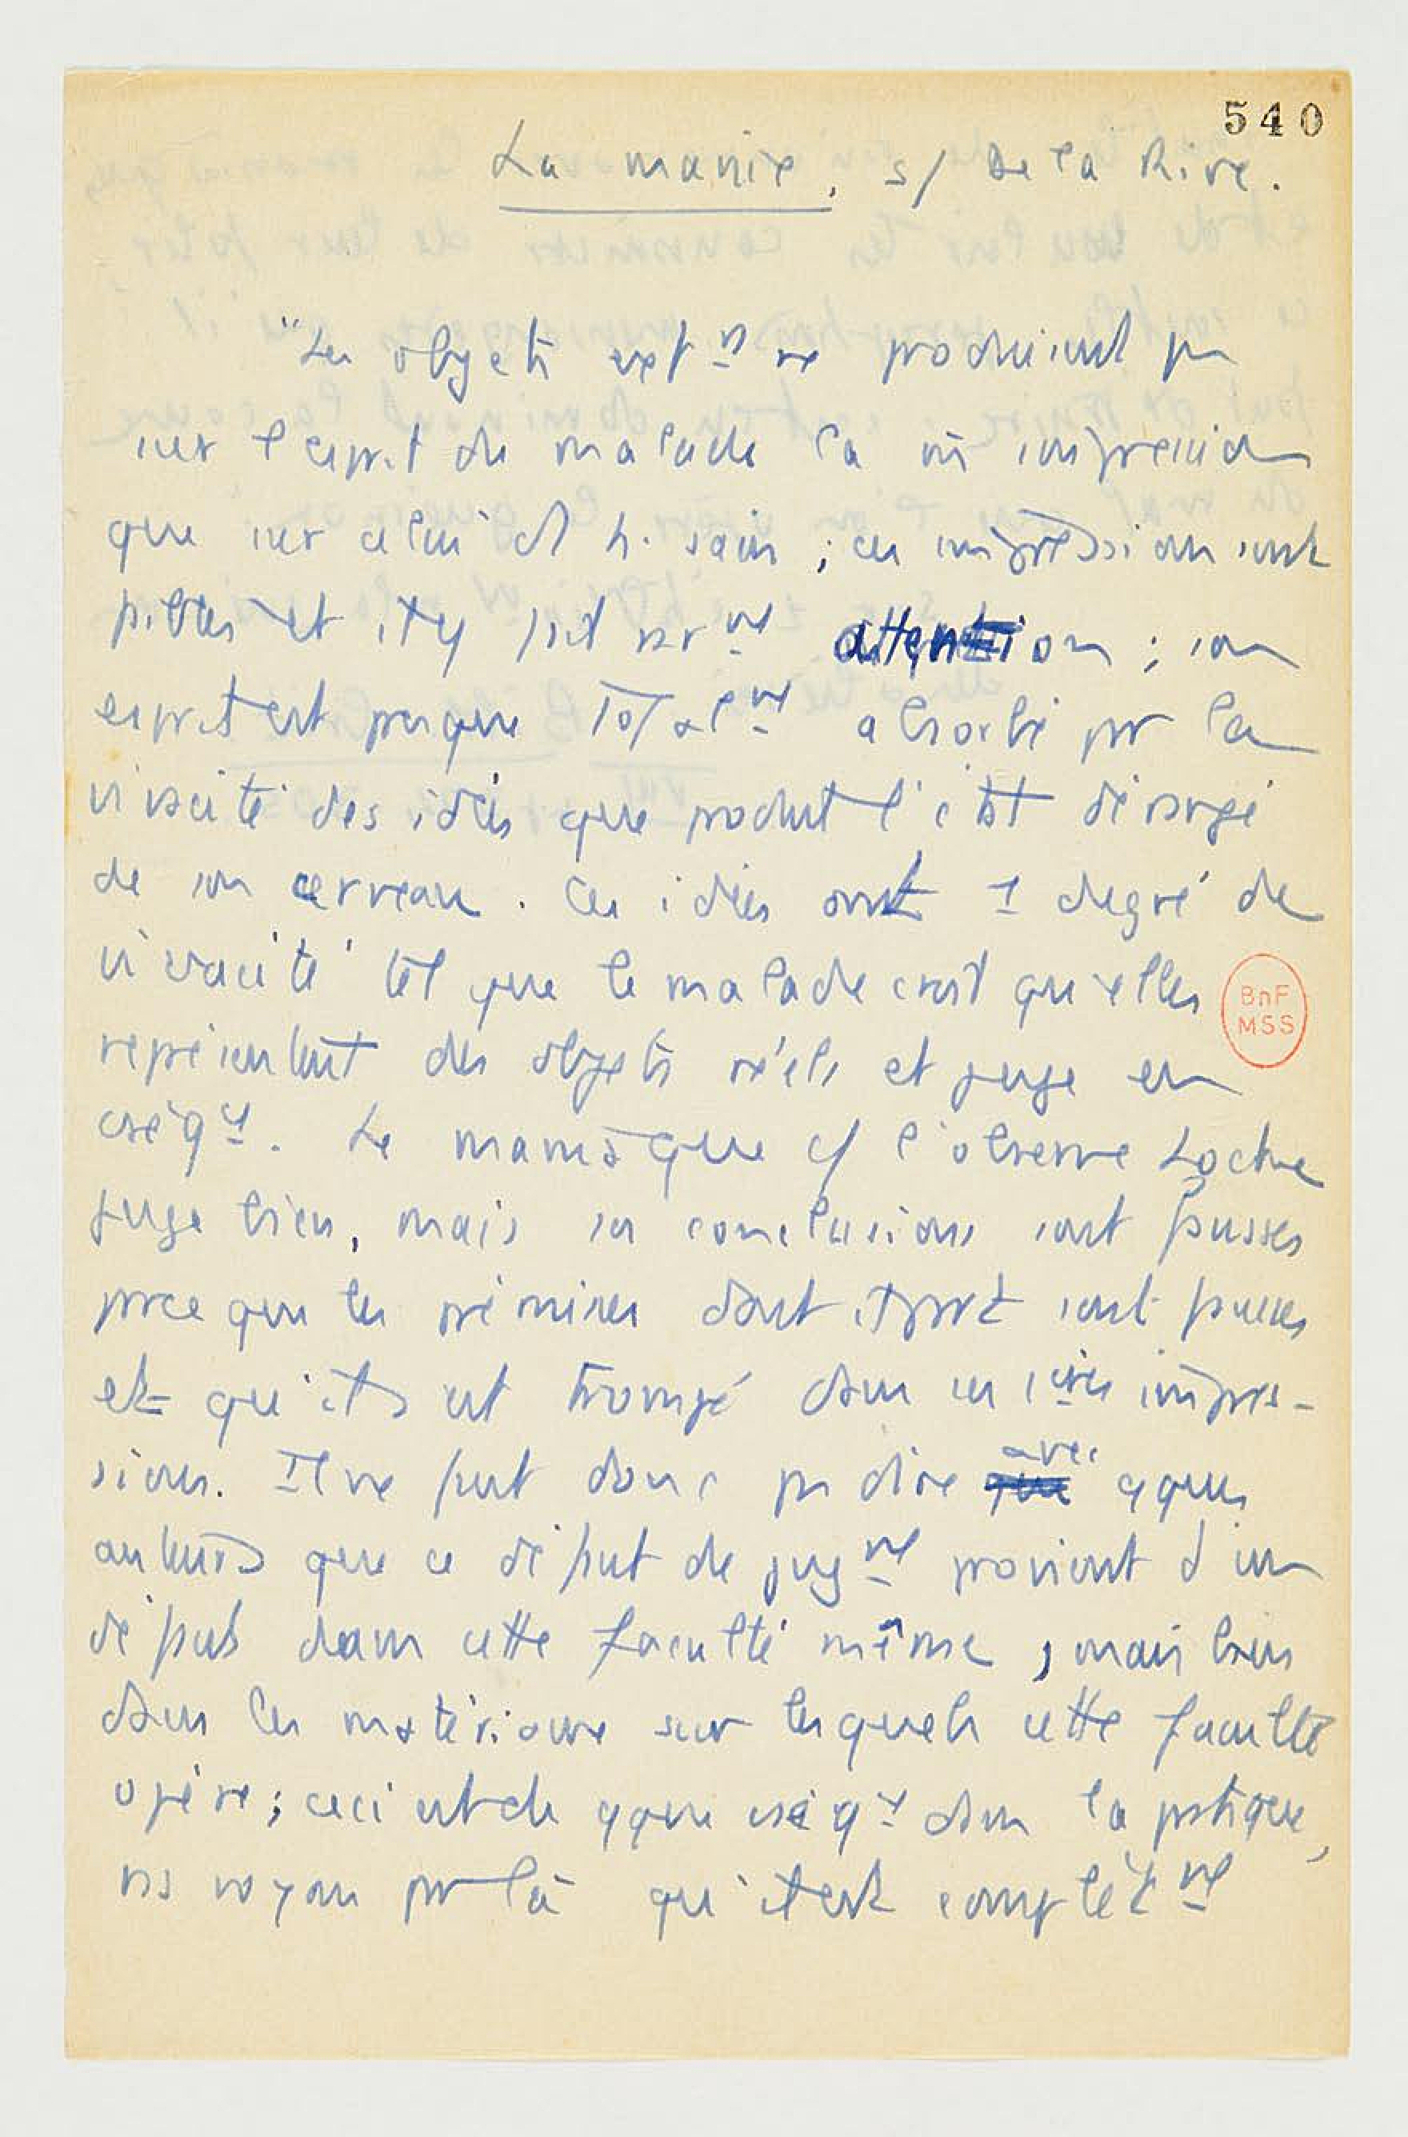 540
La manie, s/ De la Rive.
"Les objets extrs ne produisent pas
sur l'esprit du malade la m̄ impression
que sur celui d'1 h. sain ; ces impressions sont
faibles et il y fait rarmt attention ; son
esprit est presque totalmt absorbé par la
vivacité des idées que produit l'état dérangé
de son cerveau. Ces idées ont 1 degré de
vivacité tel que le malade croit qu'elles
représentent des objets réels et juge en
cséqce. Le maniaque cf l'observe Locke
juge bien, mais ses conclusions sont fausses
parce que les prémisses dont il part sont fausses
et qu'il s'est trompé dans ses 1ères impres-
sions. Il ne faut donc pas dire avec qques
auteurs que ce défaut de jugmt provient d'un
défaut dans cette faculté même, mais bien
dans les matériaux sur lesquels cette faculté
opère ; ceci est de qque cséqce dans la pratique,
ns voyons par là qu'il est complètmt
BnF
MSS